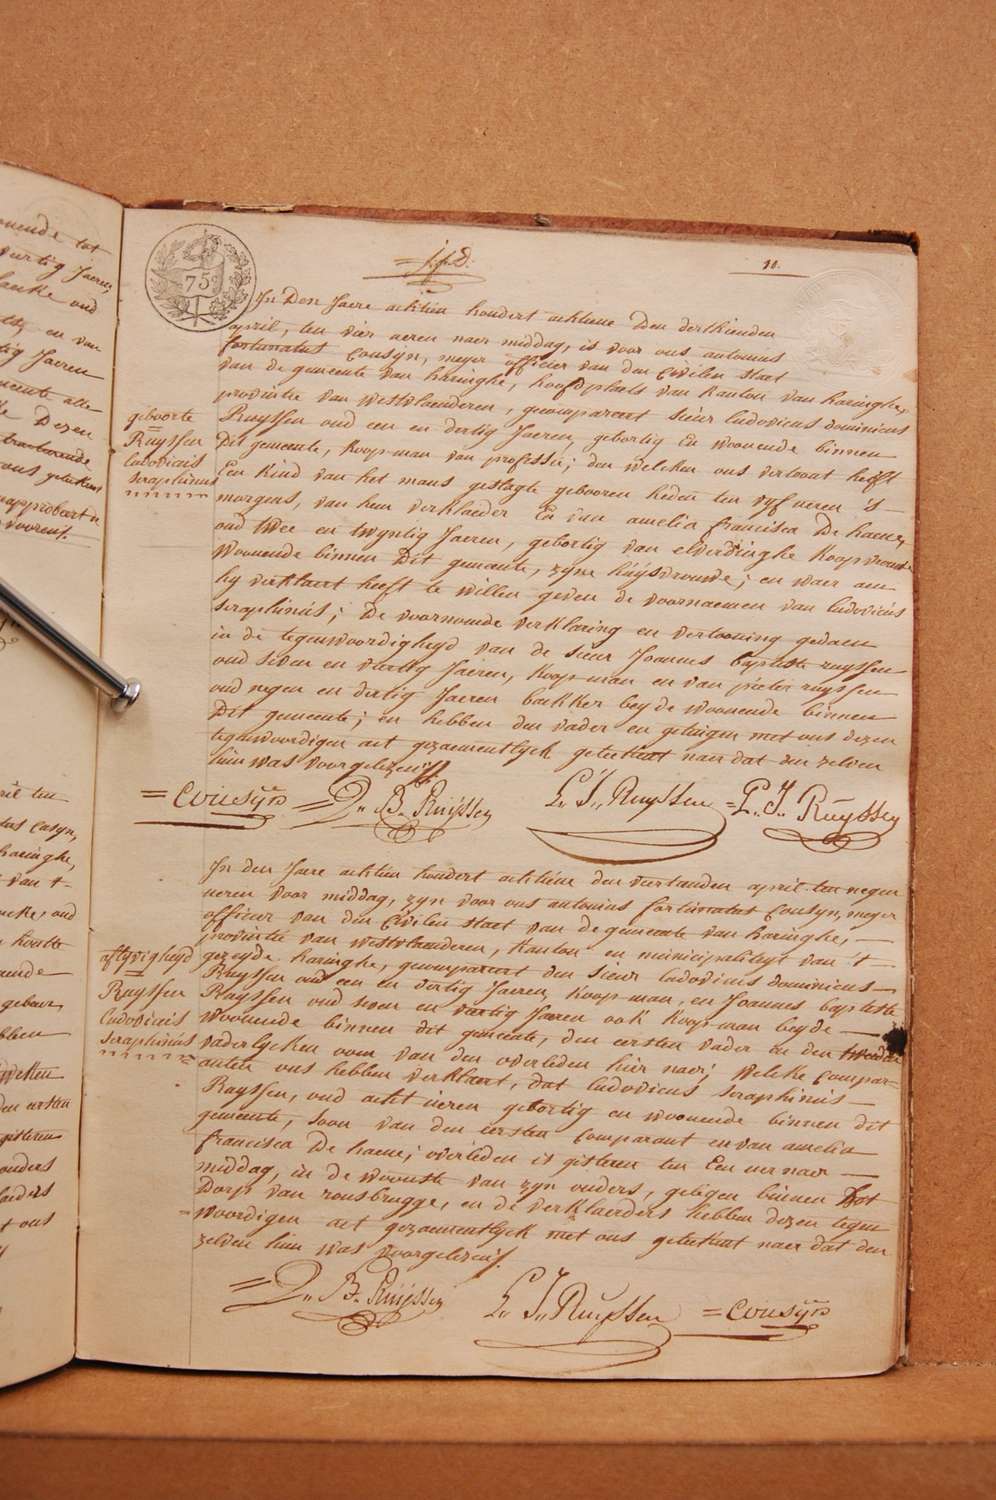 75c
11.
geboorte
Ruyssen
ludoviciis
seraphinus
In Den Jaere achtien hondert achtiene Den derthienden
april, ten vier ueren naer middag, is voor ons antonius
fortunatus Cousijn, meyer officier van den Civilen staet
van de gemeente van haringhe, hoofdplaets van Kanton van haringhe,
provintie van westvlaenderen, gecompareert sieur ludovicus dominicus
Ruyssen oud een en dertig Jaeren, gebortig En woonende binnen
Dit gemeente, koopman van professie; den welcken ons vertoont heeft
Een Kind van het mans geslagte gebooren heden ten vyf ueren 's
morgens, van hem verklaerder En van amelia francisca De haene,
oud twee en twyntig Jaeren, gebortig van elverdinghe koopvrouwe
woonende binnen Dit gemeente, zyne huysvrouwe; en waer aen
hy verklaert heeft te willen geven de voornaemen van ludovicus
seraphinus; De voornoemde verklaring en vertooning gedaen
in de tegenwoordigheyd van de sieur Joannes baptiste ruyssen
oud seven en viertig Jaeren, koopman en van pieter ruyssen
oud negen en dertig Jaeren bakker beyde woonende binnen
Dit gemeente; en hebben den vader en getuigen met ons dezen
tegenwoordigen act gezaementlyck geteekent naer dat den zelven
hun was voorgelezen.
= Cousyn = D. B. Ruijssen L. J. Ruyssen = P. J. Ruyssen
aflyvigheyd
Ruyssen
ludoviciis
seraphinus
In den Jaere achtien hondert achtiene den viertienden april ten negen
ueren voor middag, zyn voor ons antonius fortunatus Cousyn, meyer
officier van den Civilen staet van de gemeente van haringhe,
provintie van westvlaenderen, Kanton en municipaliteyt van 't
gezeyde haringhe, gecompareert den sieur ludovicus dominicus
Ruyssen oud een en dertig Jaeren, koopman, en Joannes baptiste
Ruyssen oud seven en viertig Jaeren ook koopman beyde
woonende binnen dit gemeente, den eersten vader en den tweeden
vaderlycken oom van den overleden hier naer; welcke compar-
anten ons hebben verklaert, dat ludovicus seraphinus
Ruyssen, oud acht ueren gebortig en woonende binnen dit
gemeente, soon van den eersten comparant en van amelia
francisca De haene; overleden is gisteren ten Een uer naer
middag, in de woonste van zyn ouders, gelegen binnen Het
Dorp van rousbrugge, en de verklaerders hebben dezen tegen
woordigen act gezaementlyck met ons geteekent naer dat den
zelven hun was voorgelezen.
= D. B. Ruijssen L. J. Ruyssen = Cousyn